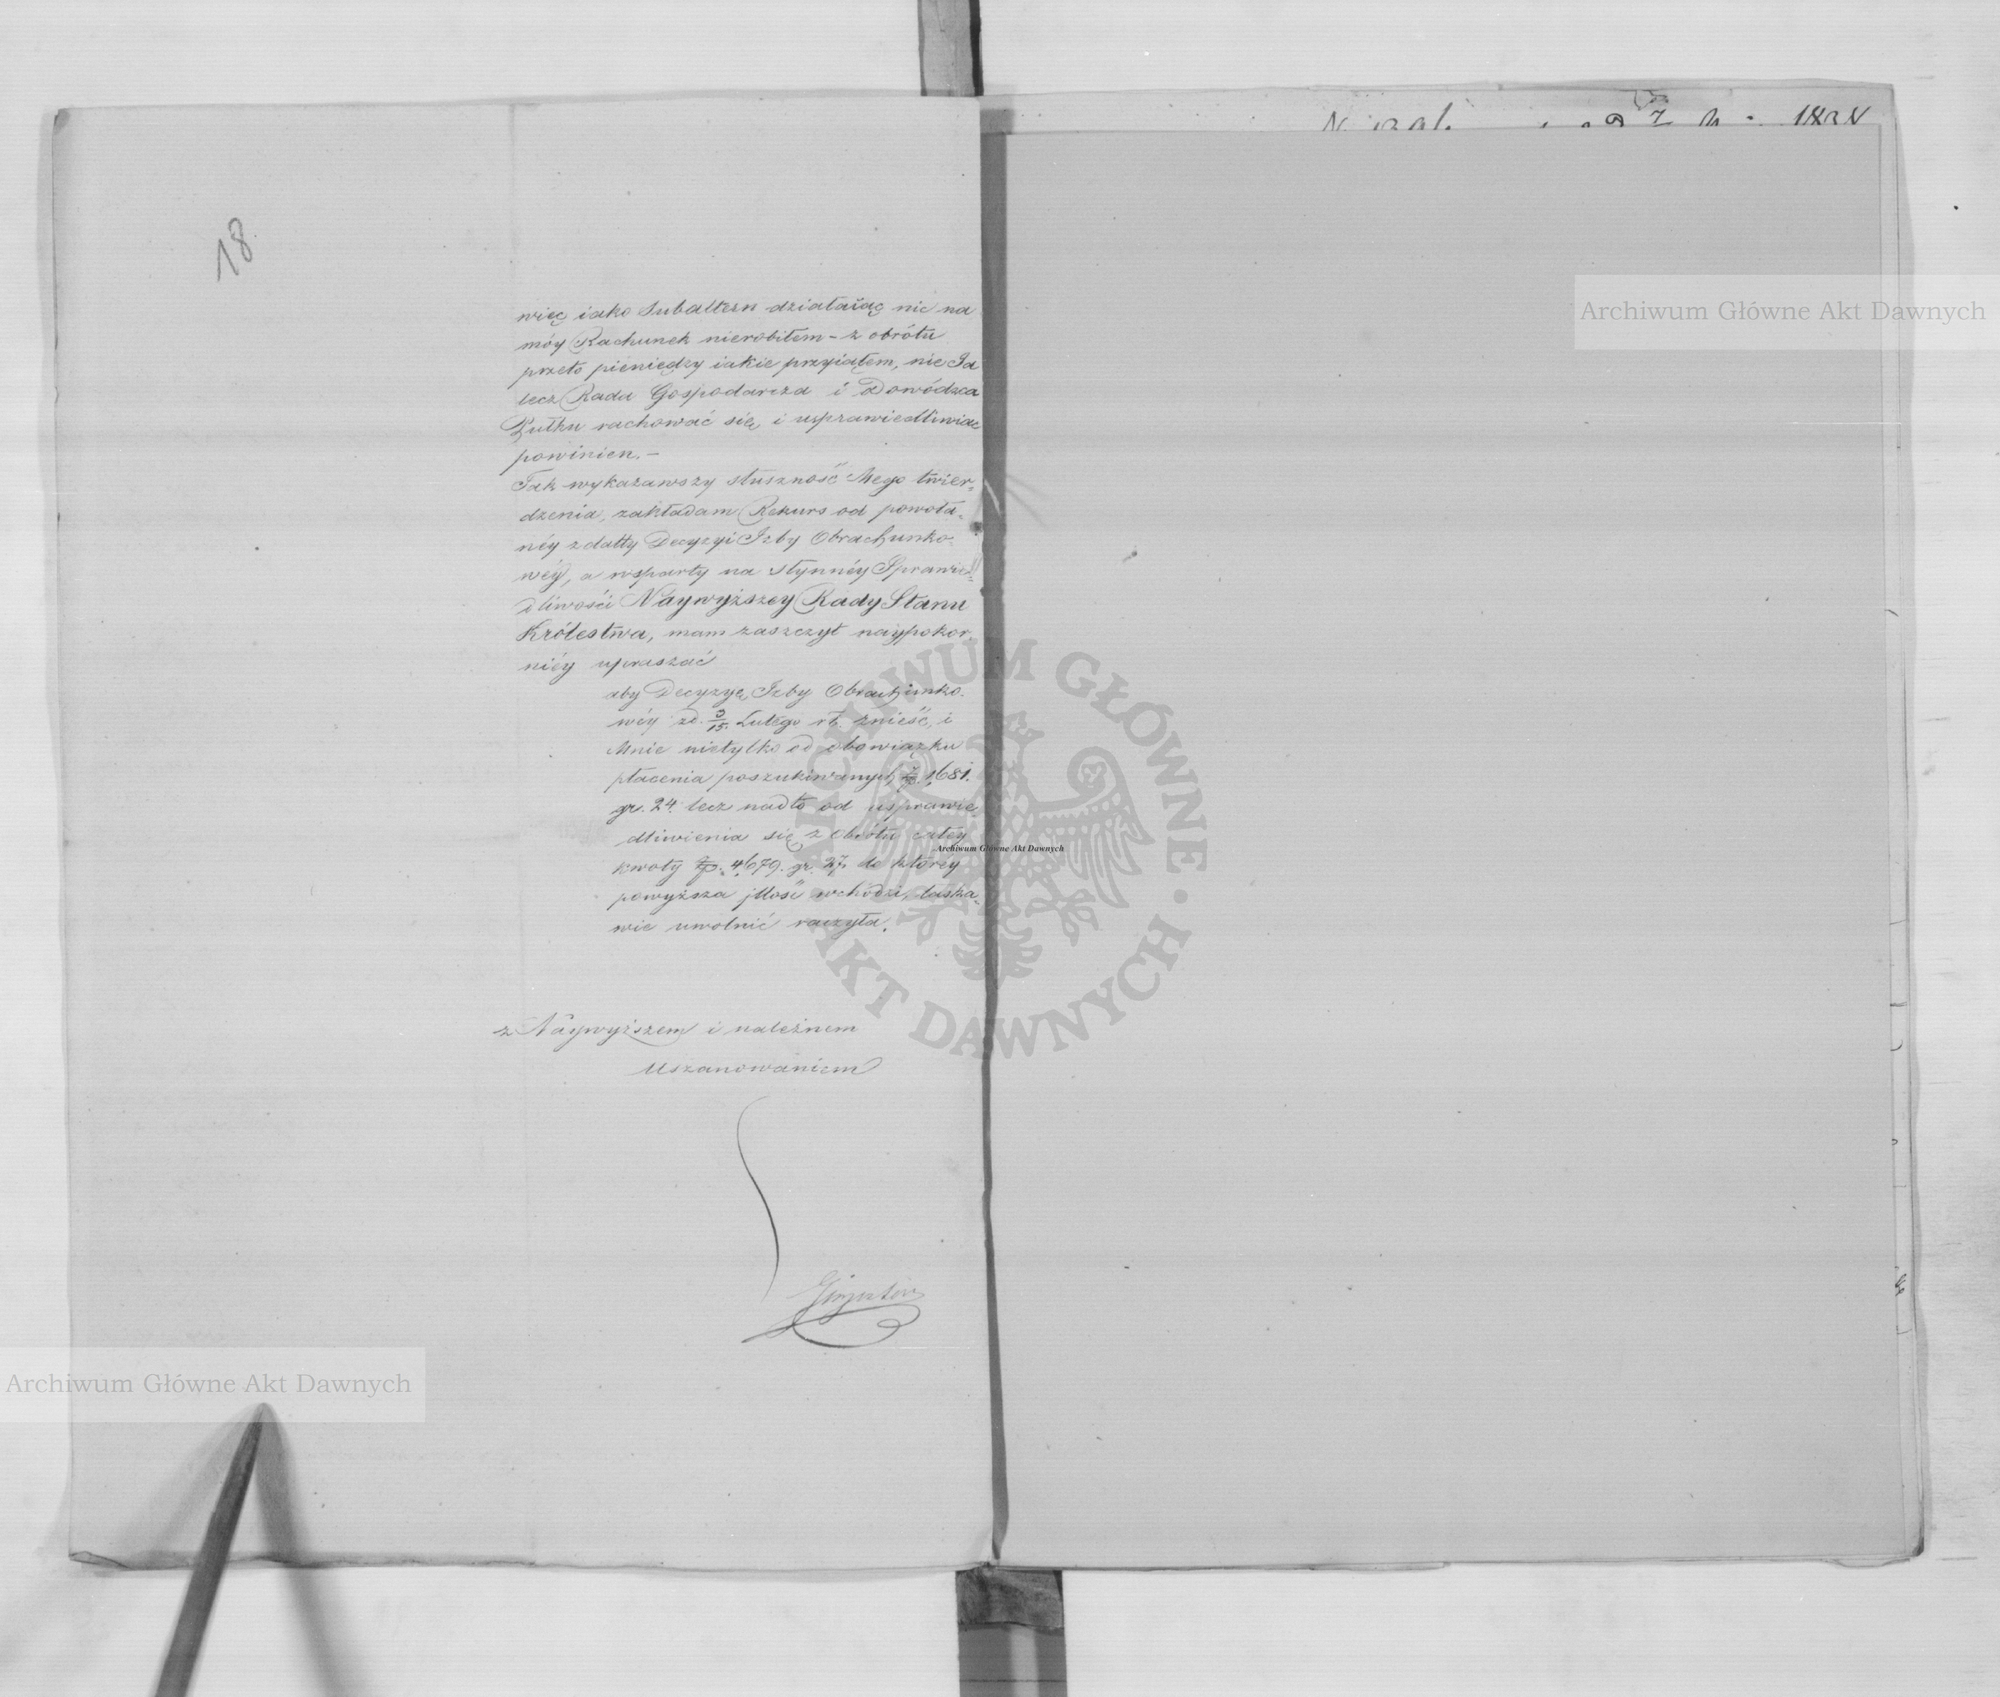 18
więc iako Subaltern działaiąc nic na
móy Rachunek nierobiłem - z obrótu
przeto pieniędzy iakie przyiąłem, nie Ja
lecz Rada Gospodarcza i Dowódzca
Pułku rachować się i usprawiedliwiac
powinien. -
Tak wykazawszy słuszność Mego twier-
dzenia, zakładam Rekurs od powoła-
néy z datty Decyzyi Izby Obrachunko-
wéy, a wsparty na słynnéy Sprawie-
dliwości Naywyższey Rady Stanu
Królestwa, mam zaszczyt naypokor-
niéy upraszać
aby Decyzyę Izby Obrachunko-
wéy zd. 3/15 Lutego rb. znieść, i
Mnie nietylko od obowiązku
płacenia poszukiwanych zp. 1,681.
gr. 24 lecz nadto od usprawie-
dliwienia się z obrótu całéy
kwoty zp. 4,679. gr. 27. do któréy
powyższa illość wchodzi, łaska-
wie uwolnić raczyła.
z Naywyższem i należnem
Uszanowaniem
Archiwum Główne Akt Dawnych
Archiwum Główne Akt Dawnych
Archiwum Główne Akt Dawnych
ARCHIWUM GŁÓWNE · AKT DAWNYCH ·